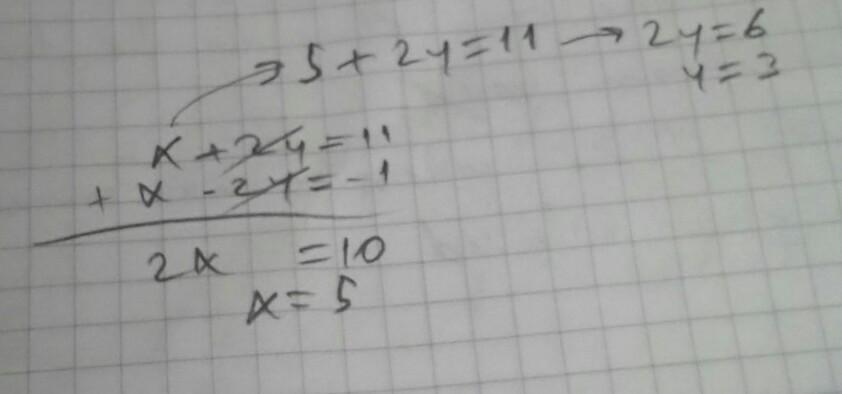 5 + 2y = 11 → 2y = 6
y = 3
x + 2y = 11
+ x - 2y = -1
2x = 10
x = 5